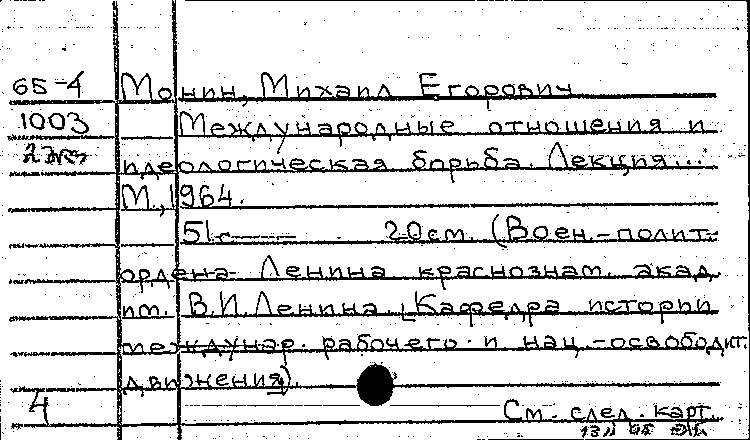 65-4 Монин, Михаил Егорович
1003 Международные отношения и
2 экз идеологическая борьба. Лекция...
М., 1964.
51 с 20 см. (Воен.-полит.
ордена Ленина краснознам. акад.
им. В.И. Ленина. Кафедра истории
междунар. рабочего и нац.-освободит.
движения).
4 См. след. карт.